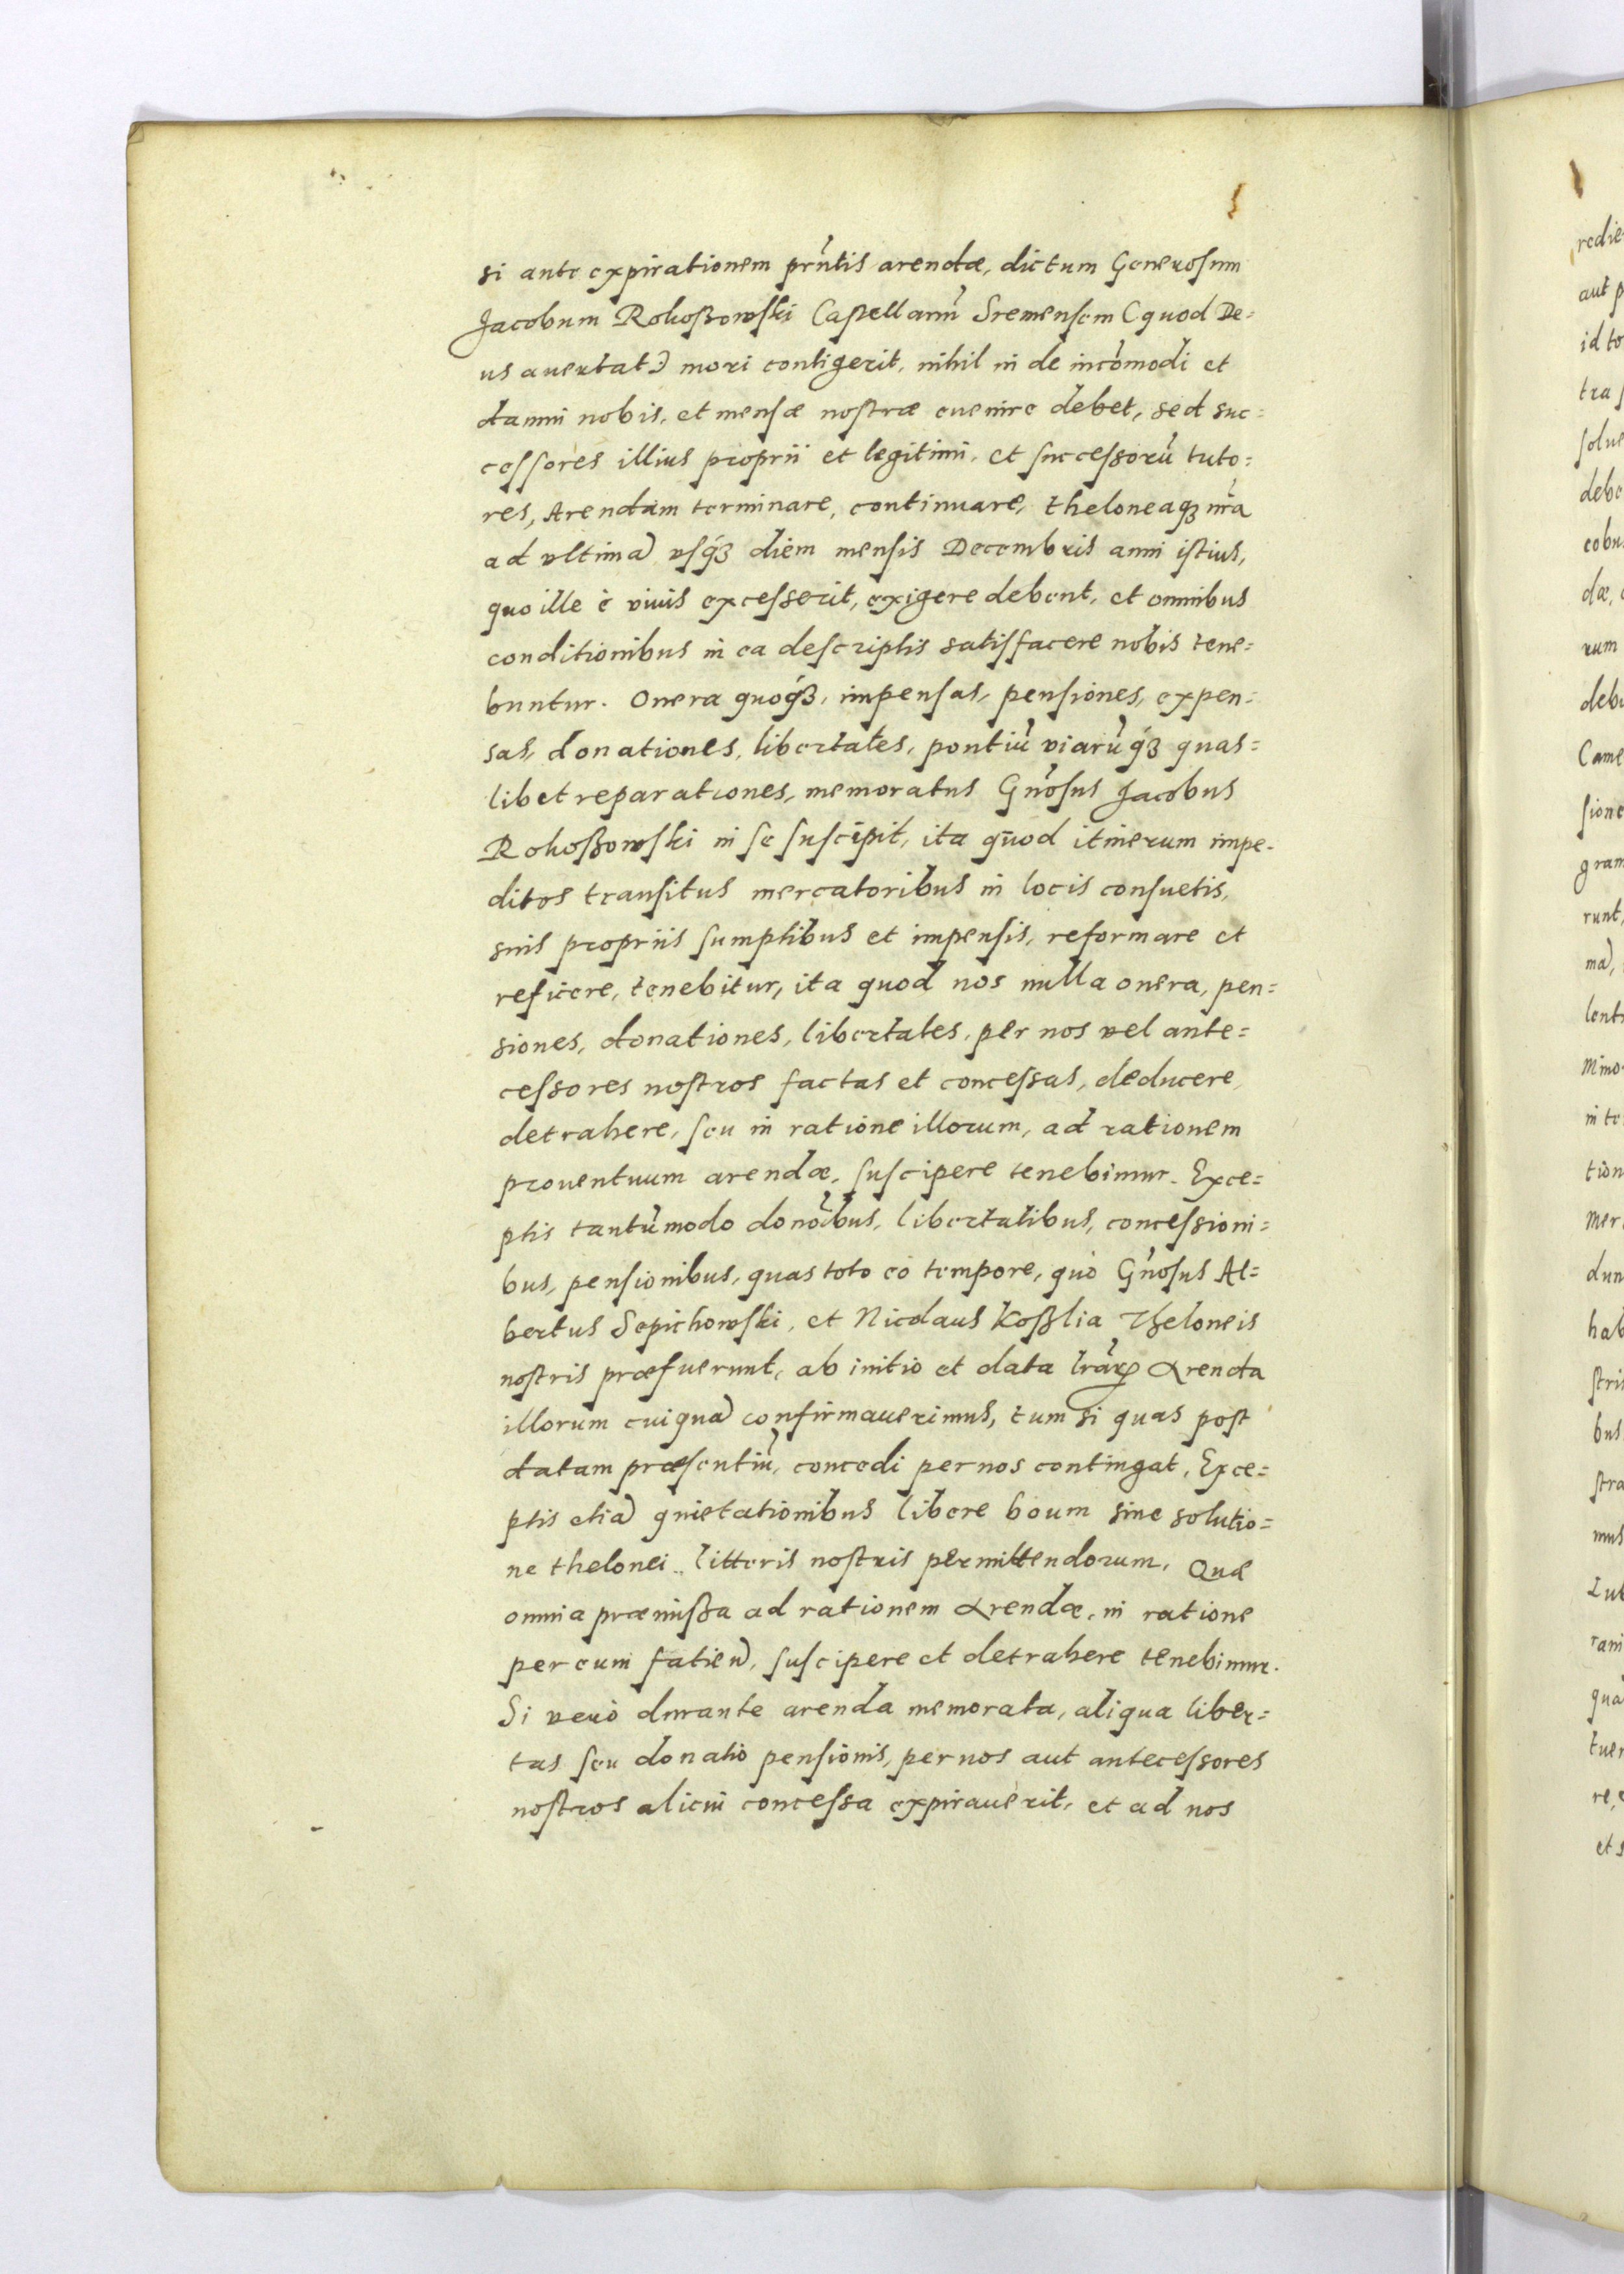 si ante expirationem prñtis arendæ, dictum Generosum
Jacobum Rokoßowski Castellanũ Sremensem (quod De=
us auertat) mori contigerit, nihil in de incõmodi et
damni nobis, et mensæ nostræ euenire debet, sed suc=
cessores illius proprii et legitimi, et successorũ tuto=
res, Arendam terminare, continuare, theloneaqȝ nrã
ad vltimã vsqȝ diem mensis Decembris anni istius,
quo ille è viuis excesserit, exigere debent, et omnibus
conditionibus in ea descriptis satisfacere nobis tene=
buntur. Onera quoqȝ, impensas, pensiones, expen=
sas, donationes, libertates, pontiũ viarũqȝ quas=
libet reparationes, memoratus Gñosus Jacobus
Rokoßowski in se suscepit, ita quod itinerum impe-
ditos transitus mercatoribus in locis consuetis,
suis propriis sumptibus et impensis, reformare et
reficere, tenebitur, ita quod nos nulla onera, pen=
siones, donationes, libertates, per nos vel ante=
cessores nostros factas et concessas, deducere,
detrahere, seu in ratione illorum, ad rationem
prouentuum arendæ, suscipere tenebimur. Exce=
ptis tantũmodo donõibus, libertatibus, concessioni=
bus, pensionibus, quas toto eo tempore, quo Gñosus Al=
bertus Sepichowski, et Nicolaus Koßlia Theloneis
nostris præfuerunt, ab initio et data lrãrꝝ Arenda
illorum cuiquã confirmauerimus, tum si quas post
datam præsentiũ, concedi per nos contingat, Exce=
ptis etiã quietationibus libere boum sine solutio=
ne thelonei litteris nostris permittendorum. Quæ
omnia præmissa ad rationem Arendæ, in ratione
per eum fatieñ, suscipere et detrahere tenebimur.
Si verò durante arenda memorata, aliqua liber=
tas seu donatio pensionis, per nos aut antecessores
nostros alicui concessa expirauerit, et ad nos